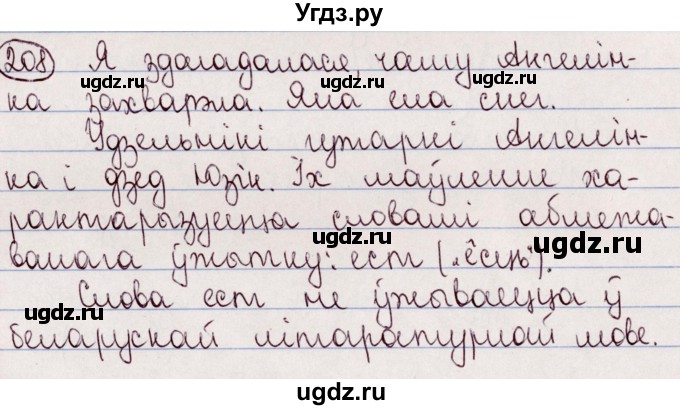 Угдз.ру
208 Я здагадалася, чаму Ангелін-
ка захварэла. Яна ела снег.
Удзельнікі гутаркі Ангелін-
ка і дзед Юзік. Іх маўленне ха-
рактарызуецца словамі абмежа-
ванага ўжытку: ест („ёсць“).
Слова ест не ўжываецца ў
беларускай літаратурнай мове.
ugdz.ru ugdz.ru ugdz.ru
ugdz.ru ugdz.ru
ugdz.ru ugdz.ru ugdz.ru
ugdz.ru ugdz.ru
ugdz.ru ugdz.ru ugdz.ru